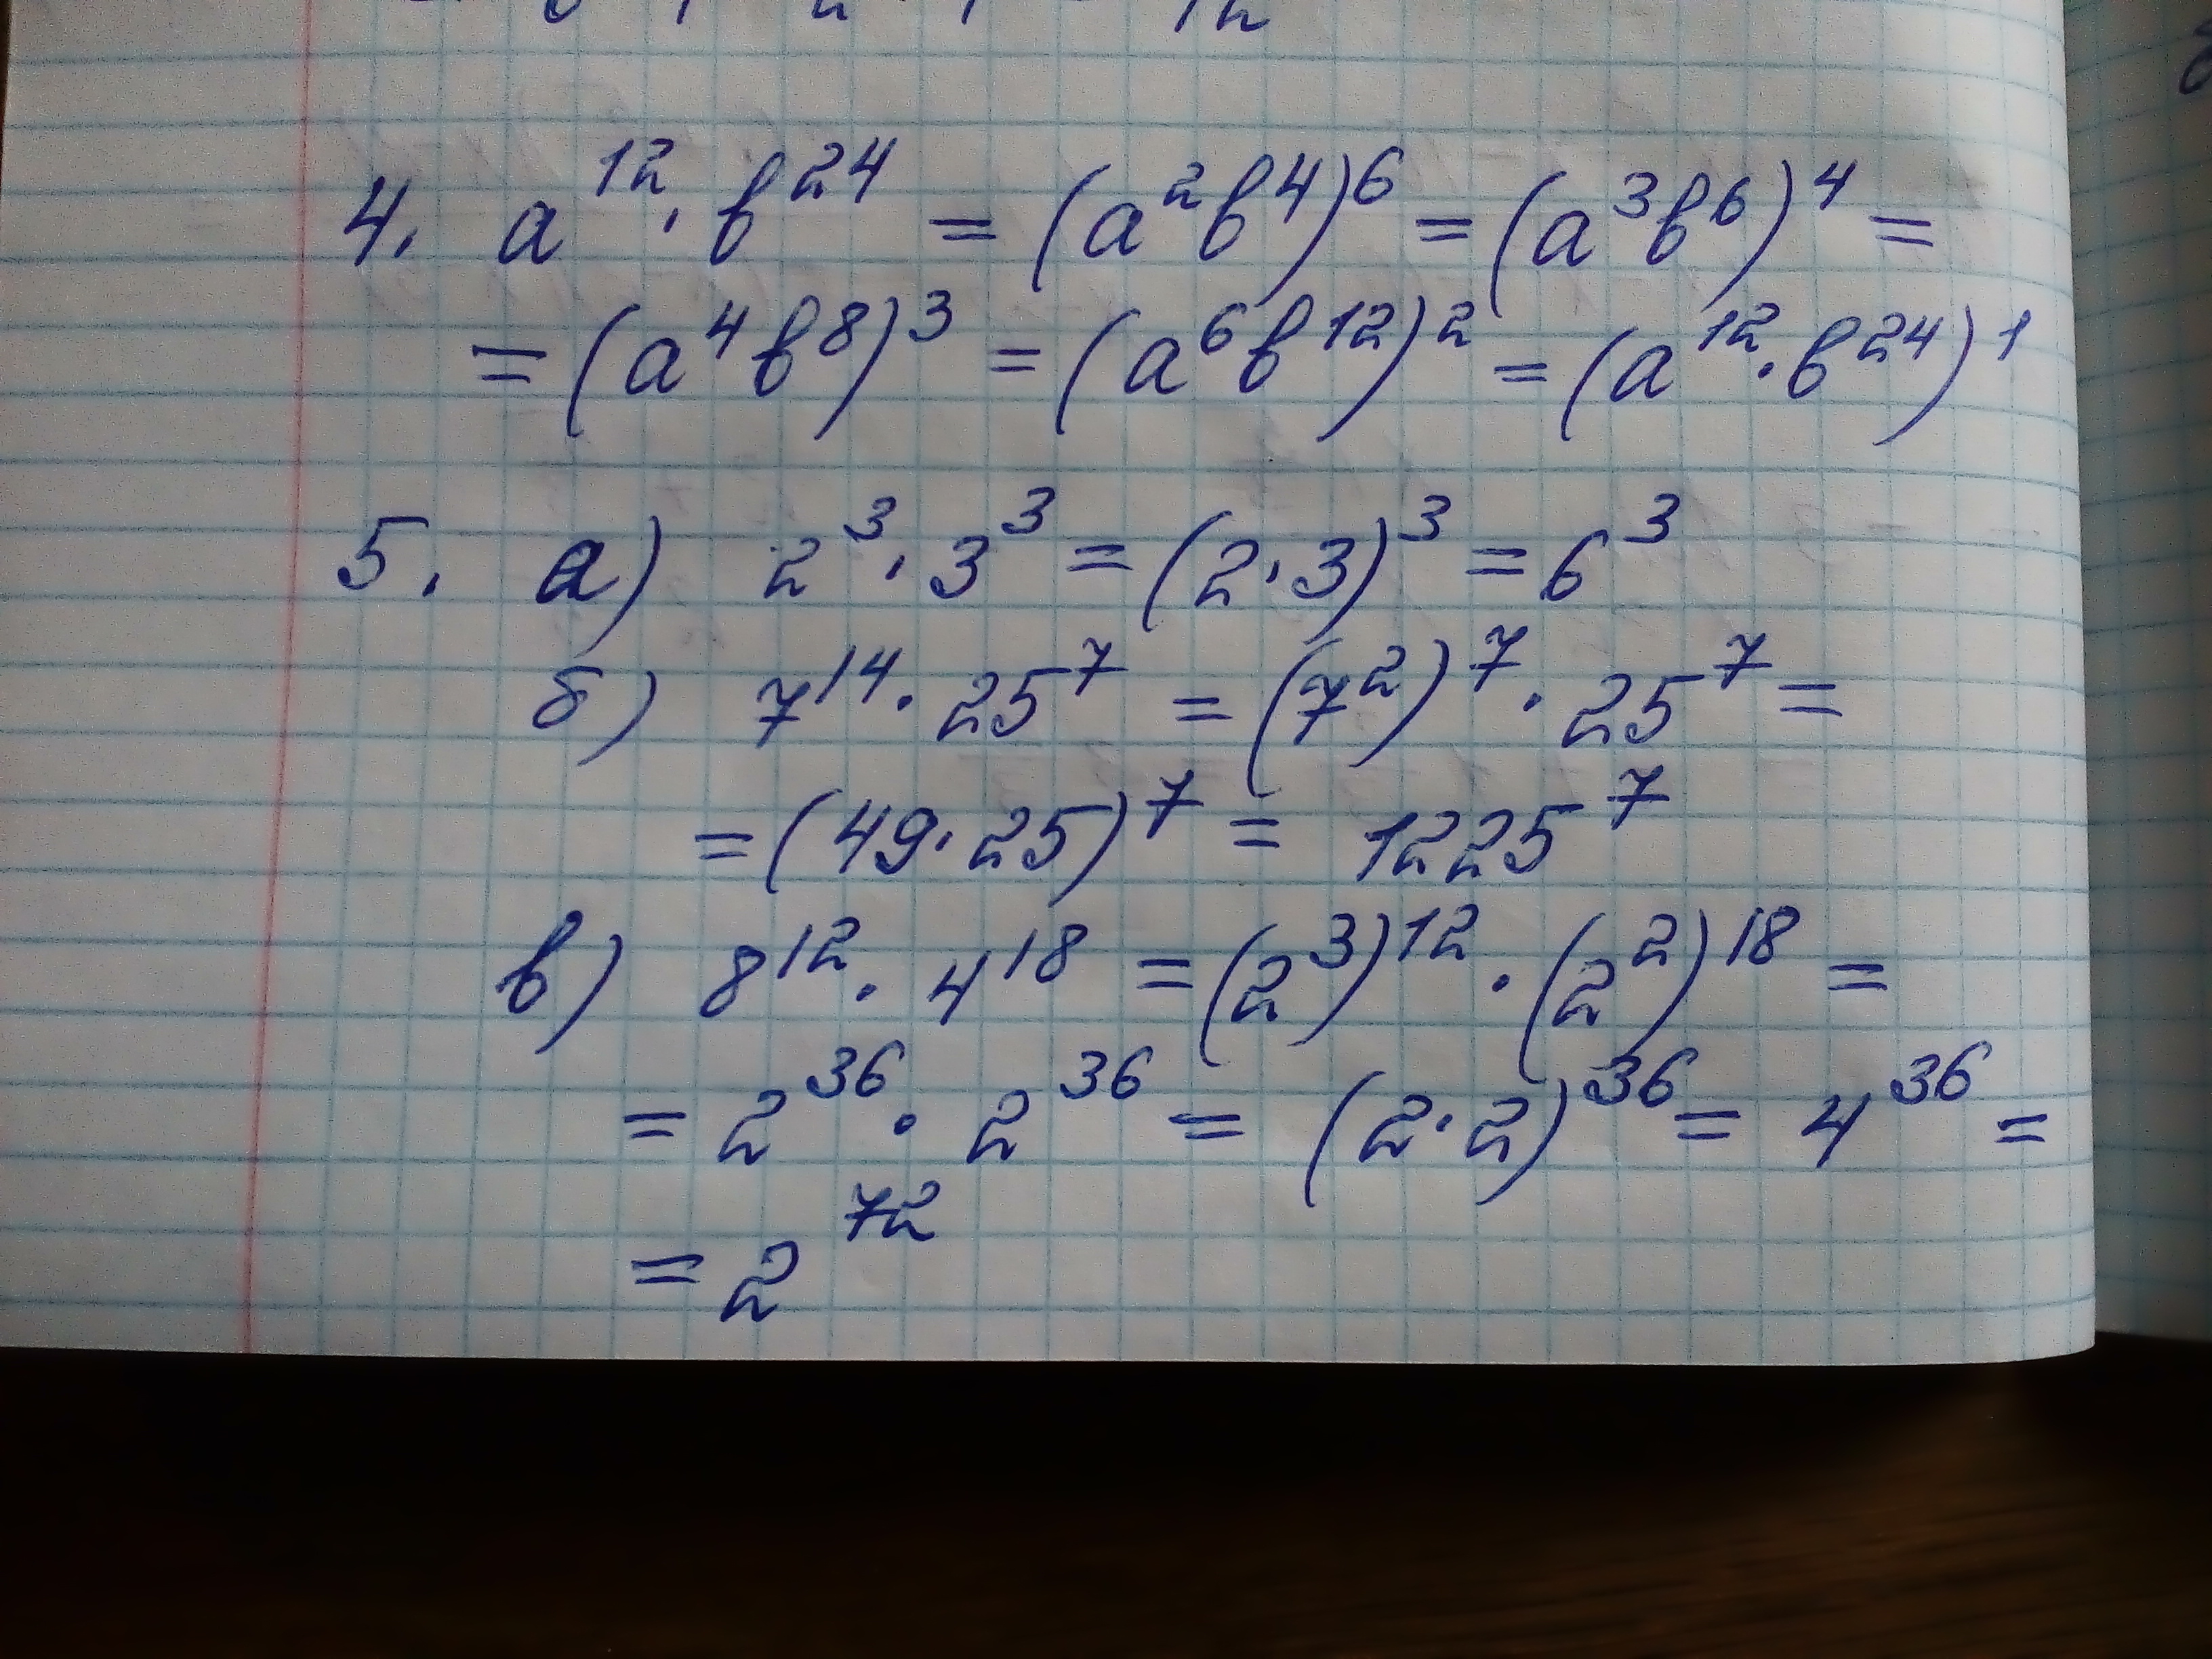 4. a¹²·b²⁴ = (a²b⁴)⁶ = (a³b⁶)⁴ =
= (a⁴b⁸)³ = (a⁶b¹²)² = (a¹²·b²⁴)¹
5. а) 2³·3³ = (2·3)³ = 6³
б) 7¹⁴·25⁷ = (7²)⁷·25⁷ =
= (49·25)⁷ = 1225⁷
в) 8¹²·4¹⁸ = (2³)¹²·(2²)¹⁸ =
= 2³⁶·2³⁶ = (2·2)³⁶ = 4³⁶ =
= 2⁷²